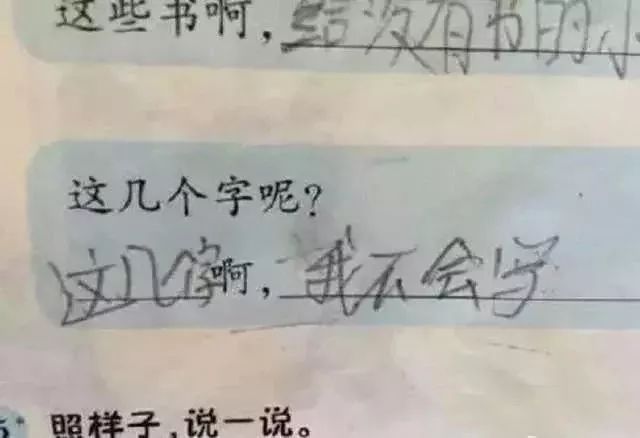 这些书啊，给没有书的小
这几个字呢？
这几个字啊，我不会写
照样子，说一说。